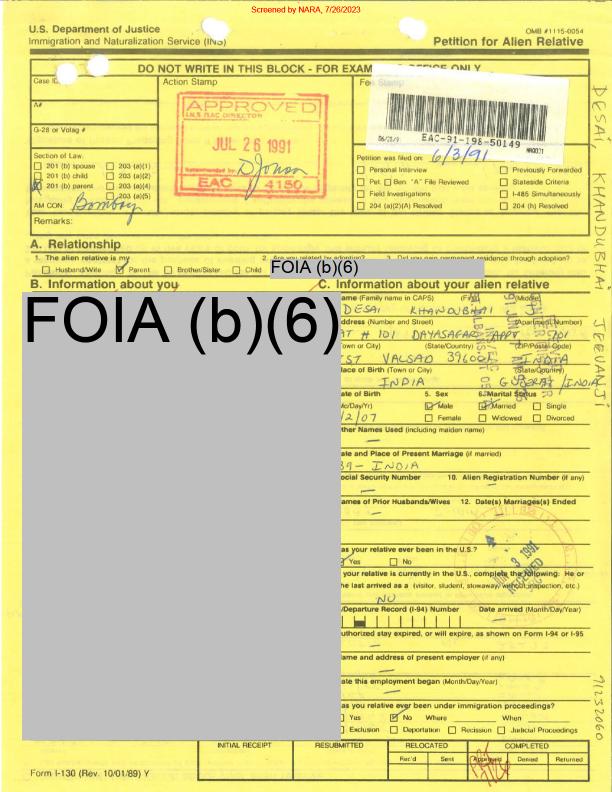 Screened by NARA, 7/26/2023
U.S. Department of Justice
Immigration and Naturalization Service (INS)
OMB #1115-0054
Petition for Alien Relative
DO NOT WRITE IN THIS BLOCK - FOR EXAM OFFICE ONLY
Case ID
Action Stamp
Fee Stamp
A#
G-28 or Volag #
APPROVED
I.N.S EAC DIRECTOR
JUL 26 1991
Recommended by
EAC 4150
EAC-91-198-50149
Section of Law:
201 (b) spouse 203 (a)(1)
201 (b) child 203 (a)(2)
201 (b) parent 203 (a)(4)
203 (a)(5)
AM CON: Bombay
Petition was filed on: 6/3/91
Personal Interview Previously Forwarded
Pet. Ben. "A" File Reviewed Stateside Criteria
Field Investigations I-485 Simultaneously
204 (a)(2)(A) Resolved 204 (h) Resolved
Remarks:
A. Relationship
1. The alien relative is my 2. Are you related by adoption? 3. Did you gain permanent residence through adoption?
Husband/Wife Parent Brother/Sister Child
FOIA (b)(6)
B. Information about you
FOIA (b)(6)
C. Information about your alien relative
ame (Family name in CAPS) (First) (Middle)
DESAI KHANDUBHAI
ddress (Number and Street) (Apartment Number)
AT # 101 DAYASAGAR APPT 101
own or City) (State/Country) (ZIP/Postal Code)
ST VALSAD 396001 INDIA
lace of Birth (Town or City) (State/Country)
INDIA GUJERAT/INDIA
ate of Birth 5. Sex 6. Marital Status
Mo/Day/Yr) Male Married Single
/2/07 Female Widowed Divorced
ther Names Used (including maiden name)
—
ate and Place of Present Marriage (if married)
39- INDIA
ocial Security Number 10. Alien Registration Number (if any)
— —
ames of Prior Husbands/Wives 12. Date(s) Marriages(s) Ended
—
as your relative ever been in the U.S.?
Yes No
JUN 3 1991
RECEIVED
your relative is currently in the U.S., complete the following: He or
he last arrived as a (visitor, student, stowaway, without inspection, etc.)
NO
/Departure Record (I-94) Number Date arrived (Month/Day/Year)
—
uthorized stay expired, or will expire, as shown on Form I-94 or I-95
—
ame and address of present employer (if any)
—
ate this employment began (Month/Day/Year)
—
as you relative ever been under immigration proceedings?
Yes No Where When
Exclusion Deportation Recission Judicial Proceedings
INITIAL RECEIPT RESUBMITTED RELOCATED COMPLETED
Rec'd Sent Approved Denied Returned
Form I-130 (Rev. 10/01/89) Y
DESAI, KHANDUBHAI JEEVANJI
91232060